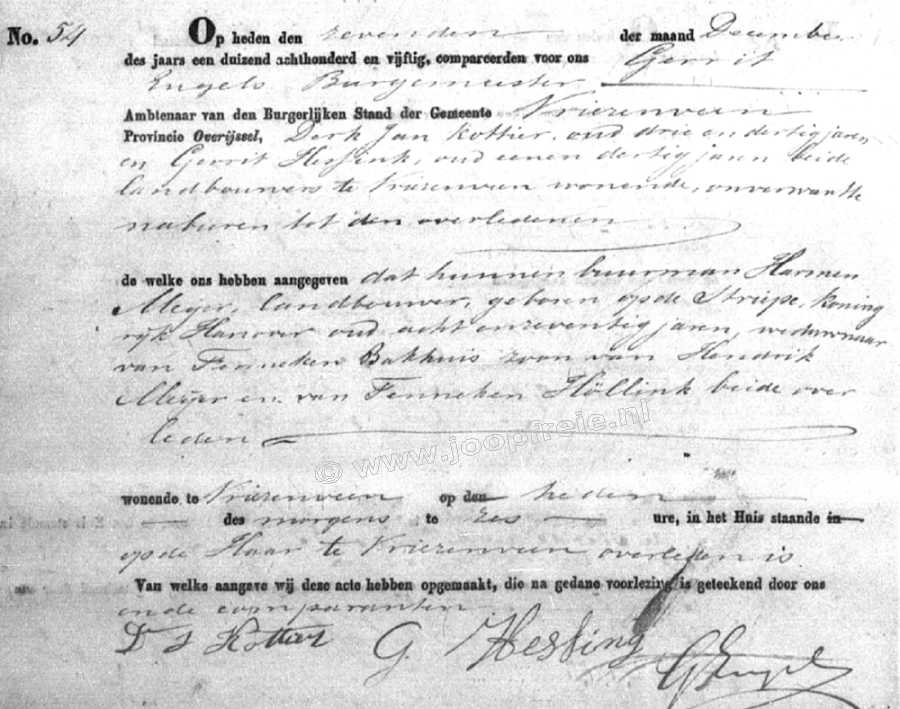 No. 54
Op heden den zevenden der maand December
des jaars een duizend achthonderd en vijftig, compareerden voor ons Gerrit
Engels Burgemeester
Ambtenaar van den Burgerlijken Stand der Gemeente Vriezenveen
Provincie Overijssel, Derk Jan Kottier, oud drie en dertig jaren
en Gerrit Hessink, oud eenen dertig jaren beide
landbouwers te Vriezenveen wonende, onverwantte
naburen tot den overledenen
de welke ons hebben aangegeven dat hunnen buurman Harmen
Meijer, landbouwer, geboren op de Striepe, Koning
rijk Hanover oud acht enzeventig jaren, weduwnaar
van Fenneken Bakhuis zoon van Hendrik
Meijer en van Fenneken Höllink beide over
leden
© www.joopfreie.nl
wonende te Vriezenveen op den heden
des morgens te zes ure, in het Huis staande in
op de Haar te Vriezenveen overleden is
Van welke aangave wij deze acte hebben opgemaakt, die na gedane voorlezing is geteekend door ons
en de comparanten
D J Kottier G. Hessing G Engels